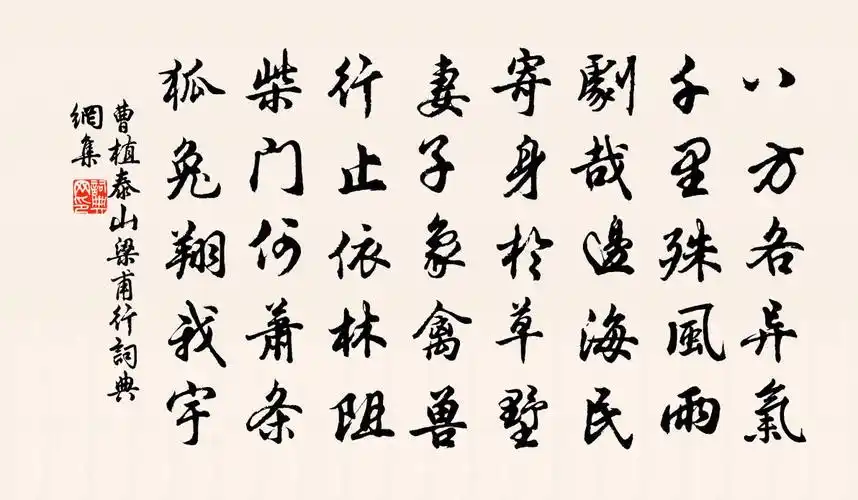 八方各异氣
千里殊風雨
劇哉邊海民
寄身於草墅
妻子象禽兽
行止依林阻
柴门何萧条
狐兔翔我宇
曹植泰山梁甫行詞典
網集
詞典
网印